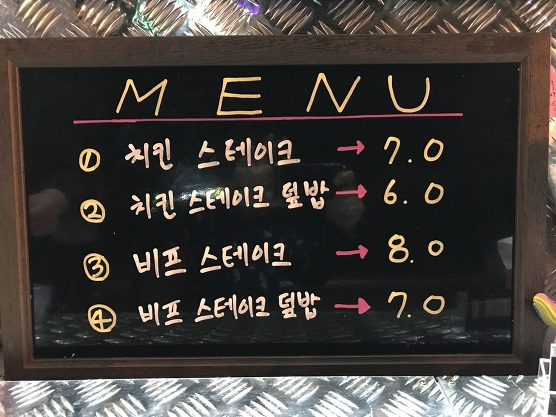 MENU
① 치킨 스테이크 → 7.0
② 치킨 스테이크 덮밥 → 6.0
③ 비프 스테이크 → 8.0
④ 비프 스테이크 덮밥 → 7.0